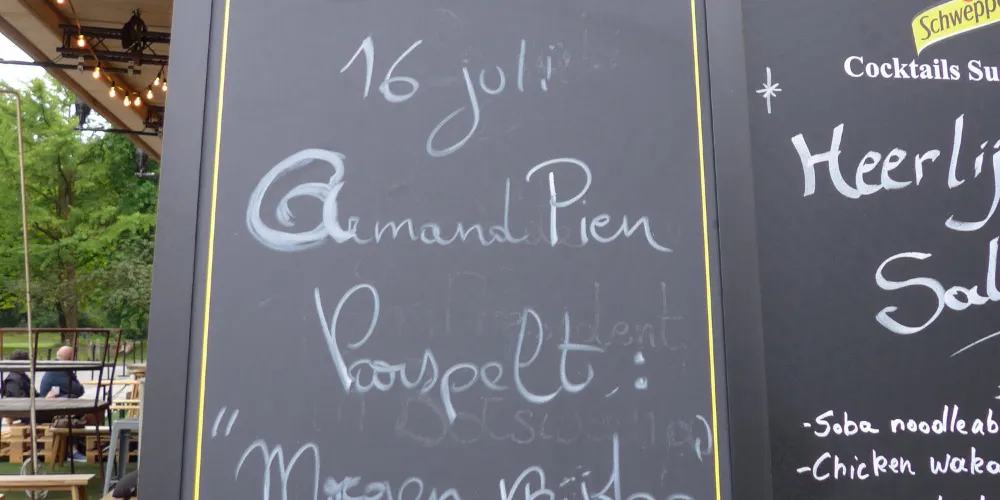 16 juli
Allemand Pien
Voorspelt :
"Morgen
Schweppe
Cocktails Su
Heerlij
Sal
-Soba noodle ab
-Chicken waka